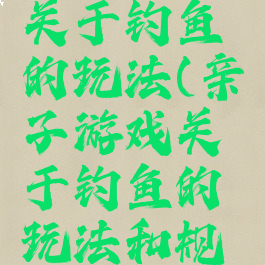 关于钓鱼
的玩法(亲
子游戏关
于钓鱼的
玩法和规